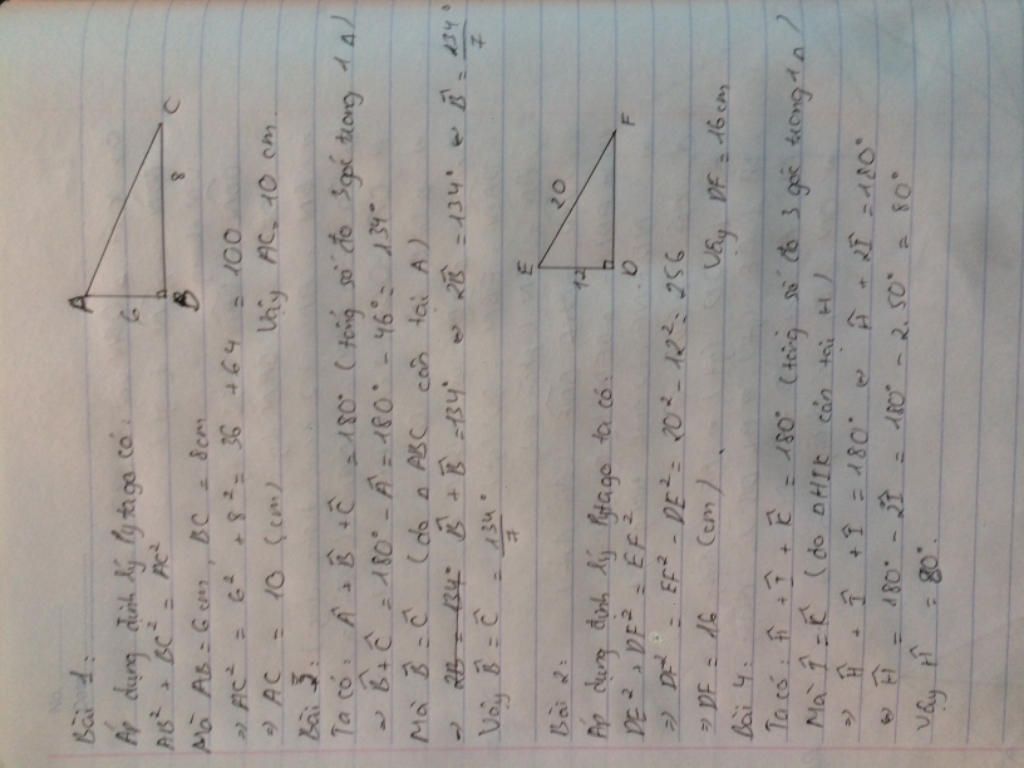 Bài 1:
A
6
B
8
C
Áp dụng định lý Pytago có:
AB² + BC² = AC²
Mà AB = 6cm, BC = 8cm
⇒ AC² = 6² + 8² = 36 + 64 = 100
⇒ AC = 10 (cm) Vậy AC = 10 cm.
Bài 3:
Ta có: Â + B̂ + Ĉ = 180° (tổng số đo 3 góc trong 1 Δ)
⇒ B̂ + Ĉ = 180° - Â = 180° - 46° = 134°
Mà B̂ = Ĉ (do Δ ABC cân tại A)
⇒ 2B = 134° B̂ + B̂ = 134° ⇔ 2B̂ = 134° ⇔ B̂ = 134°/7
Vậy B̂ = Ĉ = 134°/7
Bài 2:
E
12
D
20
F
Áp dụng định lý Pytago ta có:
DE² + DF² = EF²
⇒ DF² = EF² - DE² = 20² - 12² = 256
⇒ DF = 16 (cm) Vậy DF = 16 cm
Bài 4:
Ta có: Ĥ + Î + K̂ = 180° (tổng số đo 3 góc trong 1 Δ)
Mà Î = K̂ (do Δ HIK cân tại H)
⇒ Ĥ + Î + Î = 180° ⇔ Ĥ + 2Î = 180°
⇔ Ĥ = 180° - 2Î = 180° - 2.50° = 80°
Vậy Ĥ = 80°.